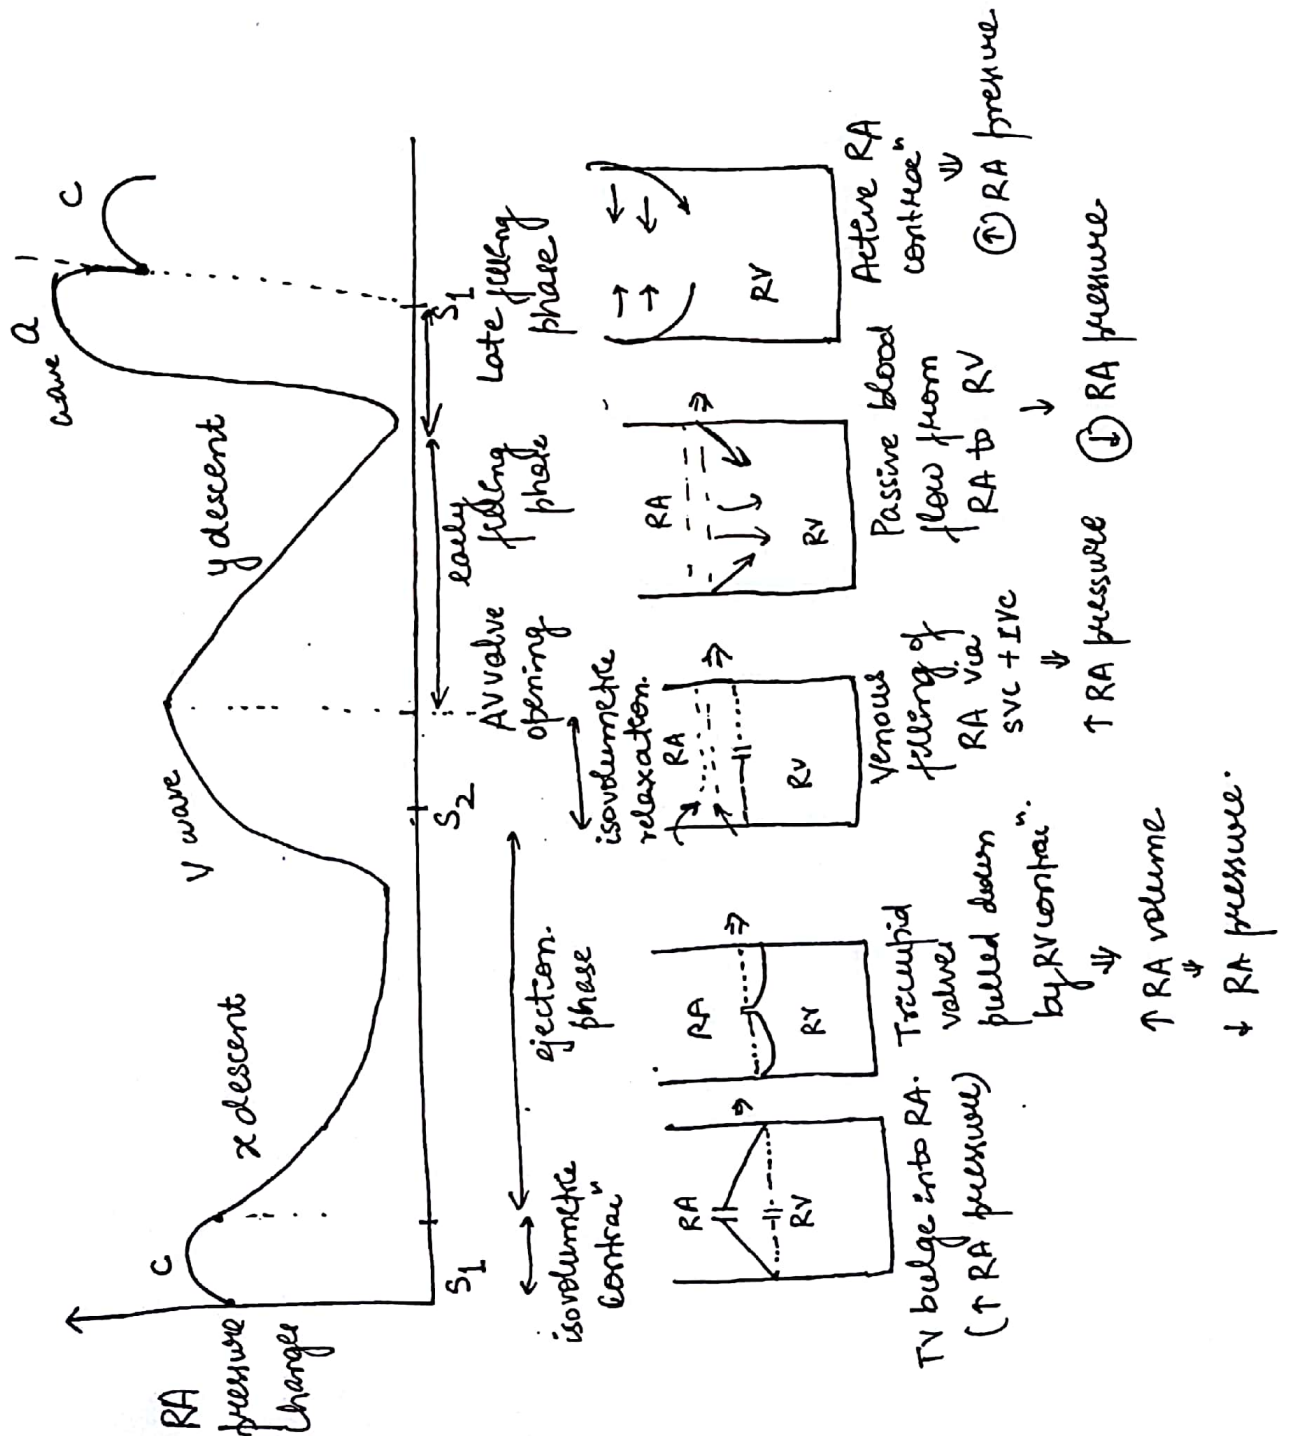 RA
pressure
changes
c
x descent
V wave
y descent
a
wave
c
S1
S2
S1
isovolumetric
contracⁿ
ejection
phase
AV valve
opening
isovolumetric
relaxation.
early
filling
phase
Late filling
phase
RA
RV
RA
RV
RA
RV
RA
RV
RV
TV bulge into RA.
(↑ RA pressure)
Tricuspid
valves
pulled down
by RV contracⁿ.
⇓
↑ RA volume
⇓
↓ RA pressure.
Venous
filling of
RA via
SVC + IVC
⇓
↑ RA pressure
Passive blood
flow from
RA to RV
↓
(↓) RA pressure
Active RA
contracⁿ
⇓
(↑) RA pressure